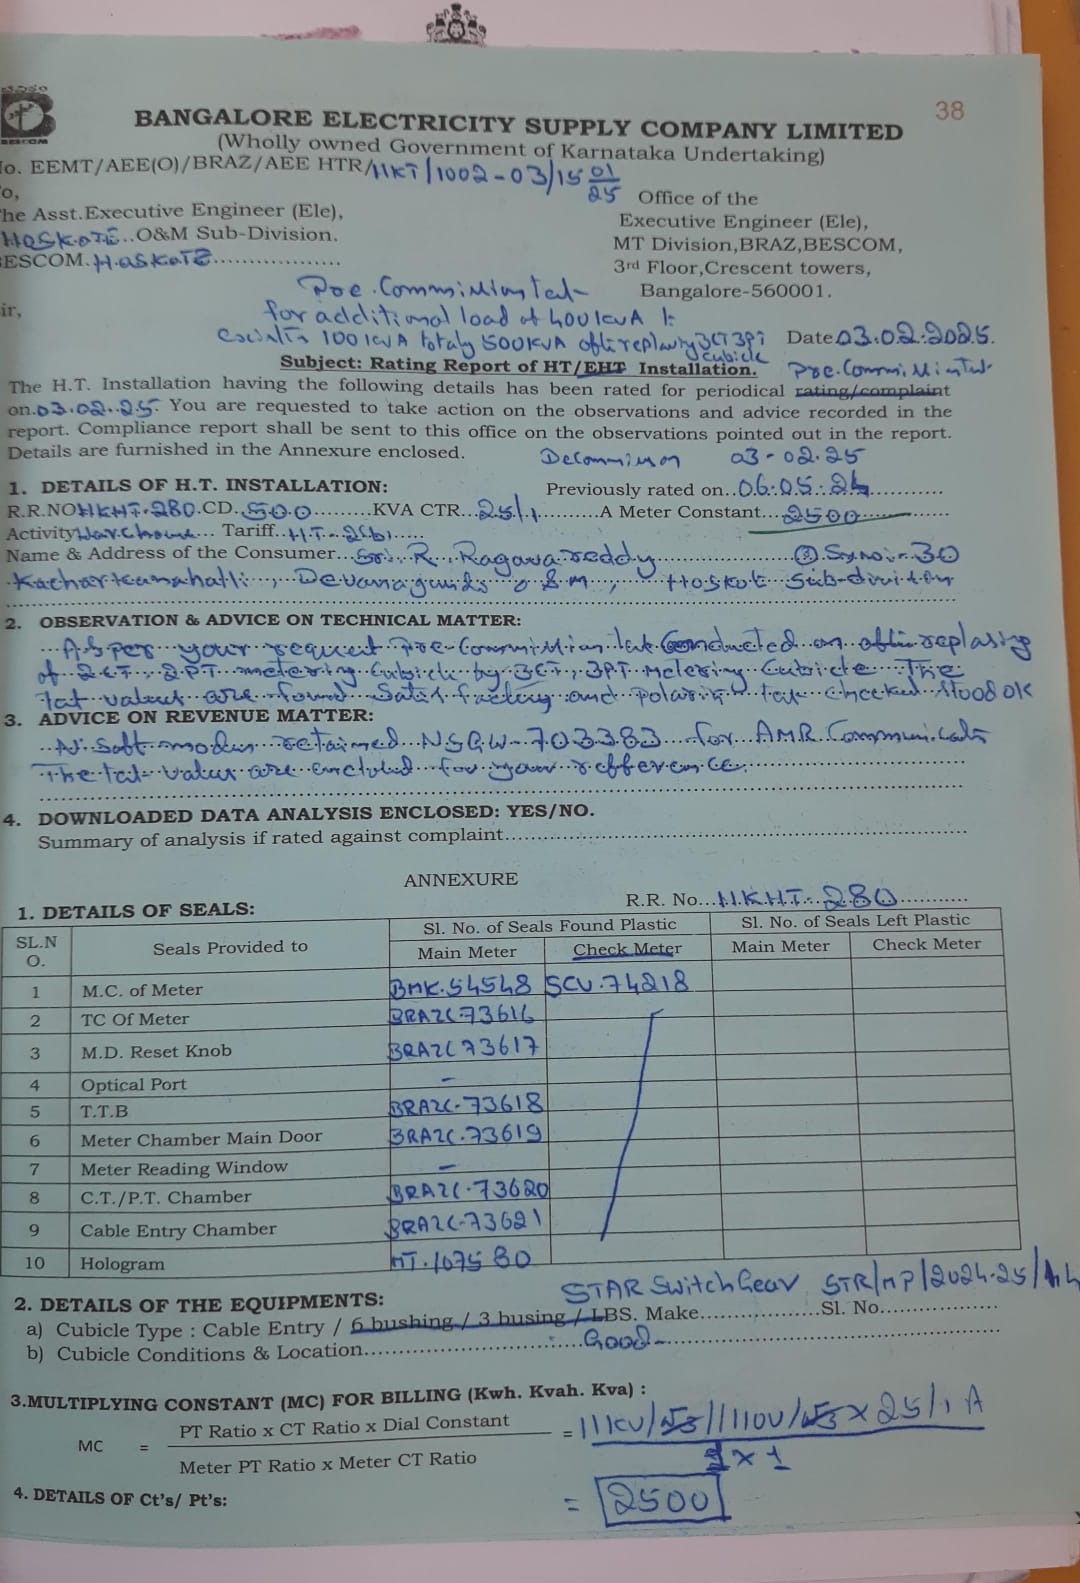 38
BESCOM
BANGALORE ELECTRICITY SUPPLY COMPANY LIMITED
(Wholly owned Government of Karnataka Undertaking)
No. EEMT/AEE(O)/BRAZ/AEE HTR/HKT/1002-03/15 01/25
To,
The Asst.Executive Engineer (Ele),
HOSKOTE..O&M Sub-Division.
BESCOM. HOSKOTE
Office of the
Executive Engineer (Ele),
MT Division,BRAZ,BESCOM,
3rd Floor,Crescent towers,
Bangalore-560001.
Sir,
for additional load of 400 kVA
100 kVA totaly 500KVA after replacing 3CT 3PT cubicle
Date 03.02.2025.
Subject: Rating Report of HT/EHT Installation.
The H.T. Installation having the following details has been rated for periodical rating/complaint
on 03.02.25. You are requested to take action on the observations and advice recorded in the
report. Compliance report shall be sent to this office on the observations pointed out in the report.
Details are furnished in the Annexure enclosed.
03-02.25
1. DETAILS OF H.T. INSTALLATION:
Previously rated on..06.05.24
R.R.NO HKHT-280.CD..500.........KVA CTR...25/1.........A Meter Constant...2500
Activity Tariff..HT-2(b)
Name & Address of the Consumer...Sri. R. Ragava reddy @ Sy no:-30
Devanagundi O&M, Hoskote Sub-division
2. OBSERVATION & ADVICE ON TECHNICAL MATTER:
As per your request Conducted on after replasing
of 2CT, 2PT metering Cubicle by 3CT, 3PT Metering Cubicle The
values are found and polarity checked stood OK
3. ADVICE ON REVENUE MATTER:
retained NSGW-703383 for AMR
The values are enclosed for your refference.
4. DOWNLOADED DATA ANALYSIS ENCLOSED: YES/NO.
Summary of analysis if rated against complaint
ANNEXURE
1. DETAILS OF SEALS:
R.R. No...HKHT-280
SL.NO. Seals Provided to Sl. No. of Seals Found Plastic Sl. No. of Seals Left Plastic
Main Meter Check Meter Main Meter Check Meter
1 M.C. of Meter BMK.54548 SCU.74218
2 TC Of Meter BRAZC73616
3 M.D. Reset Knob BRAZC73617
4 Optical Port -
5 T.T.B BRAZC-73618
6 Meter Chamber Main Door BRAZC.73619
7 Meter Reading Window -
8 C.T./P.T. Chamber BRAZC.73620
9 Cable Entry Chamber BRAZC-73621
10 Hologram MT.107580
2. DETAILS OF THE EQUIPMENTS:
STAR SwitchGear STR/MP/2024-25/
a) Cubicle Type : Cable Entry / 6 bushing / 3 busing / LBS. Make Sl. No.
b) Cubicle Conditions & Location Good
3.MULTIPLYING CONSTANT (MC) FOR BILLING (Kwh. Kvah. Kva) :
MC = PT Ratio x CT Ratio x Dial Constant = 11KV/√3//110V/√3 x 25/1 A
Meter PT Ratio x Meter CT Ratio 1 x 1
4. DETAILS OF Ct's/ Pt's:
= 2500